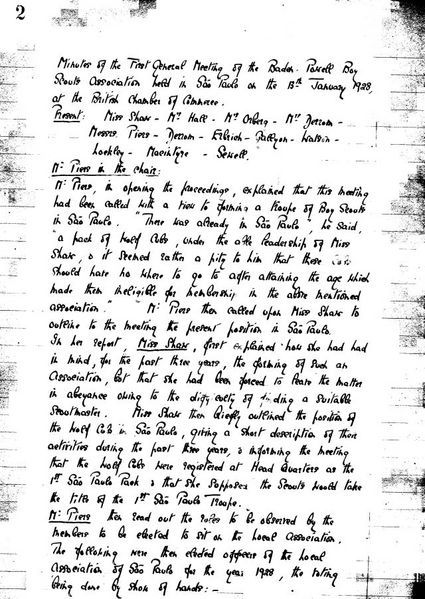 2
Minutes of the First General Meeting of the Baden-Powell Boy
Scouts Association held in São Paulo on the 13th January 1928,
at the British Chamber of Commerce.
Present: Miss Shaw - Mrs Hall - Mrs Orberg - Mrs Derrom -
Messrs. Piers - Derrom - Erbrich - Fallyon - Watkin -
Lockley - Macintyre - Sewell.
Mr Piers in the chair:
Mr Piers, in opening the proceedings, explained that this meeting
had been called with a view to forming a troupe of Boy Scouts
in São Paulo. "There was already in São Paulo", he said,
"a pack of Wolf Cubs, under the able leadership of Miss
Shaw, & it seemed rather a pity to him that these Cubs
should have no where to go to after attaining the age which
made them ineligible for membership in the above mentioned
association." Mr Piers then called upon Miss Shaw to
outline to the meeting the present position in São Paulo.
In her report, Miss Shaw, first explained how she had had
in mind, for the past three years, the forming of such an
Association, but that she had been forced to leave the matter
in abeyance owing to the difficulty of finding a suitable
Scoutmaster. Miss Shaw then briefly outlined the position of
the Wolf Cubs in São Paulo, giving a short description of their
activities during the past three years, & informing the meeting
that the Wolf Cubs were registered at Head Quarters as the
1st São Paulo Pack & that she supposed the Scouts would take
the title of the 1st São Paulo Troupe.
Mr Piers then read out the rules to be observed by the
members to be elected to sit on the Local Association.
The following were then elected officers of the Local
Association of São Paulo for the year 1928, the voting
being done by show of hands:-